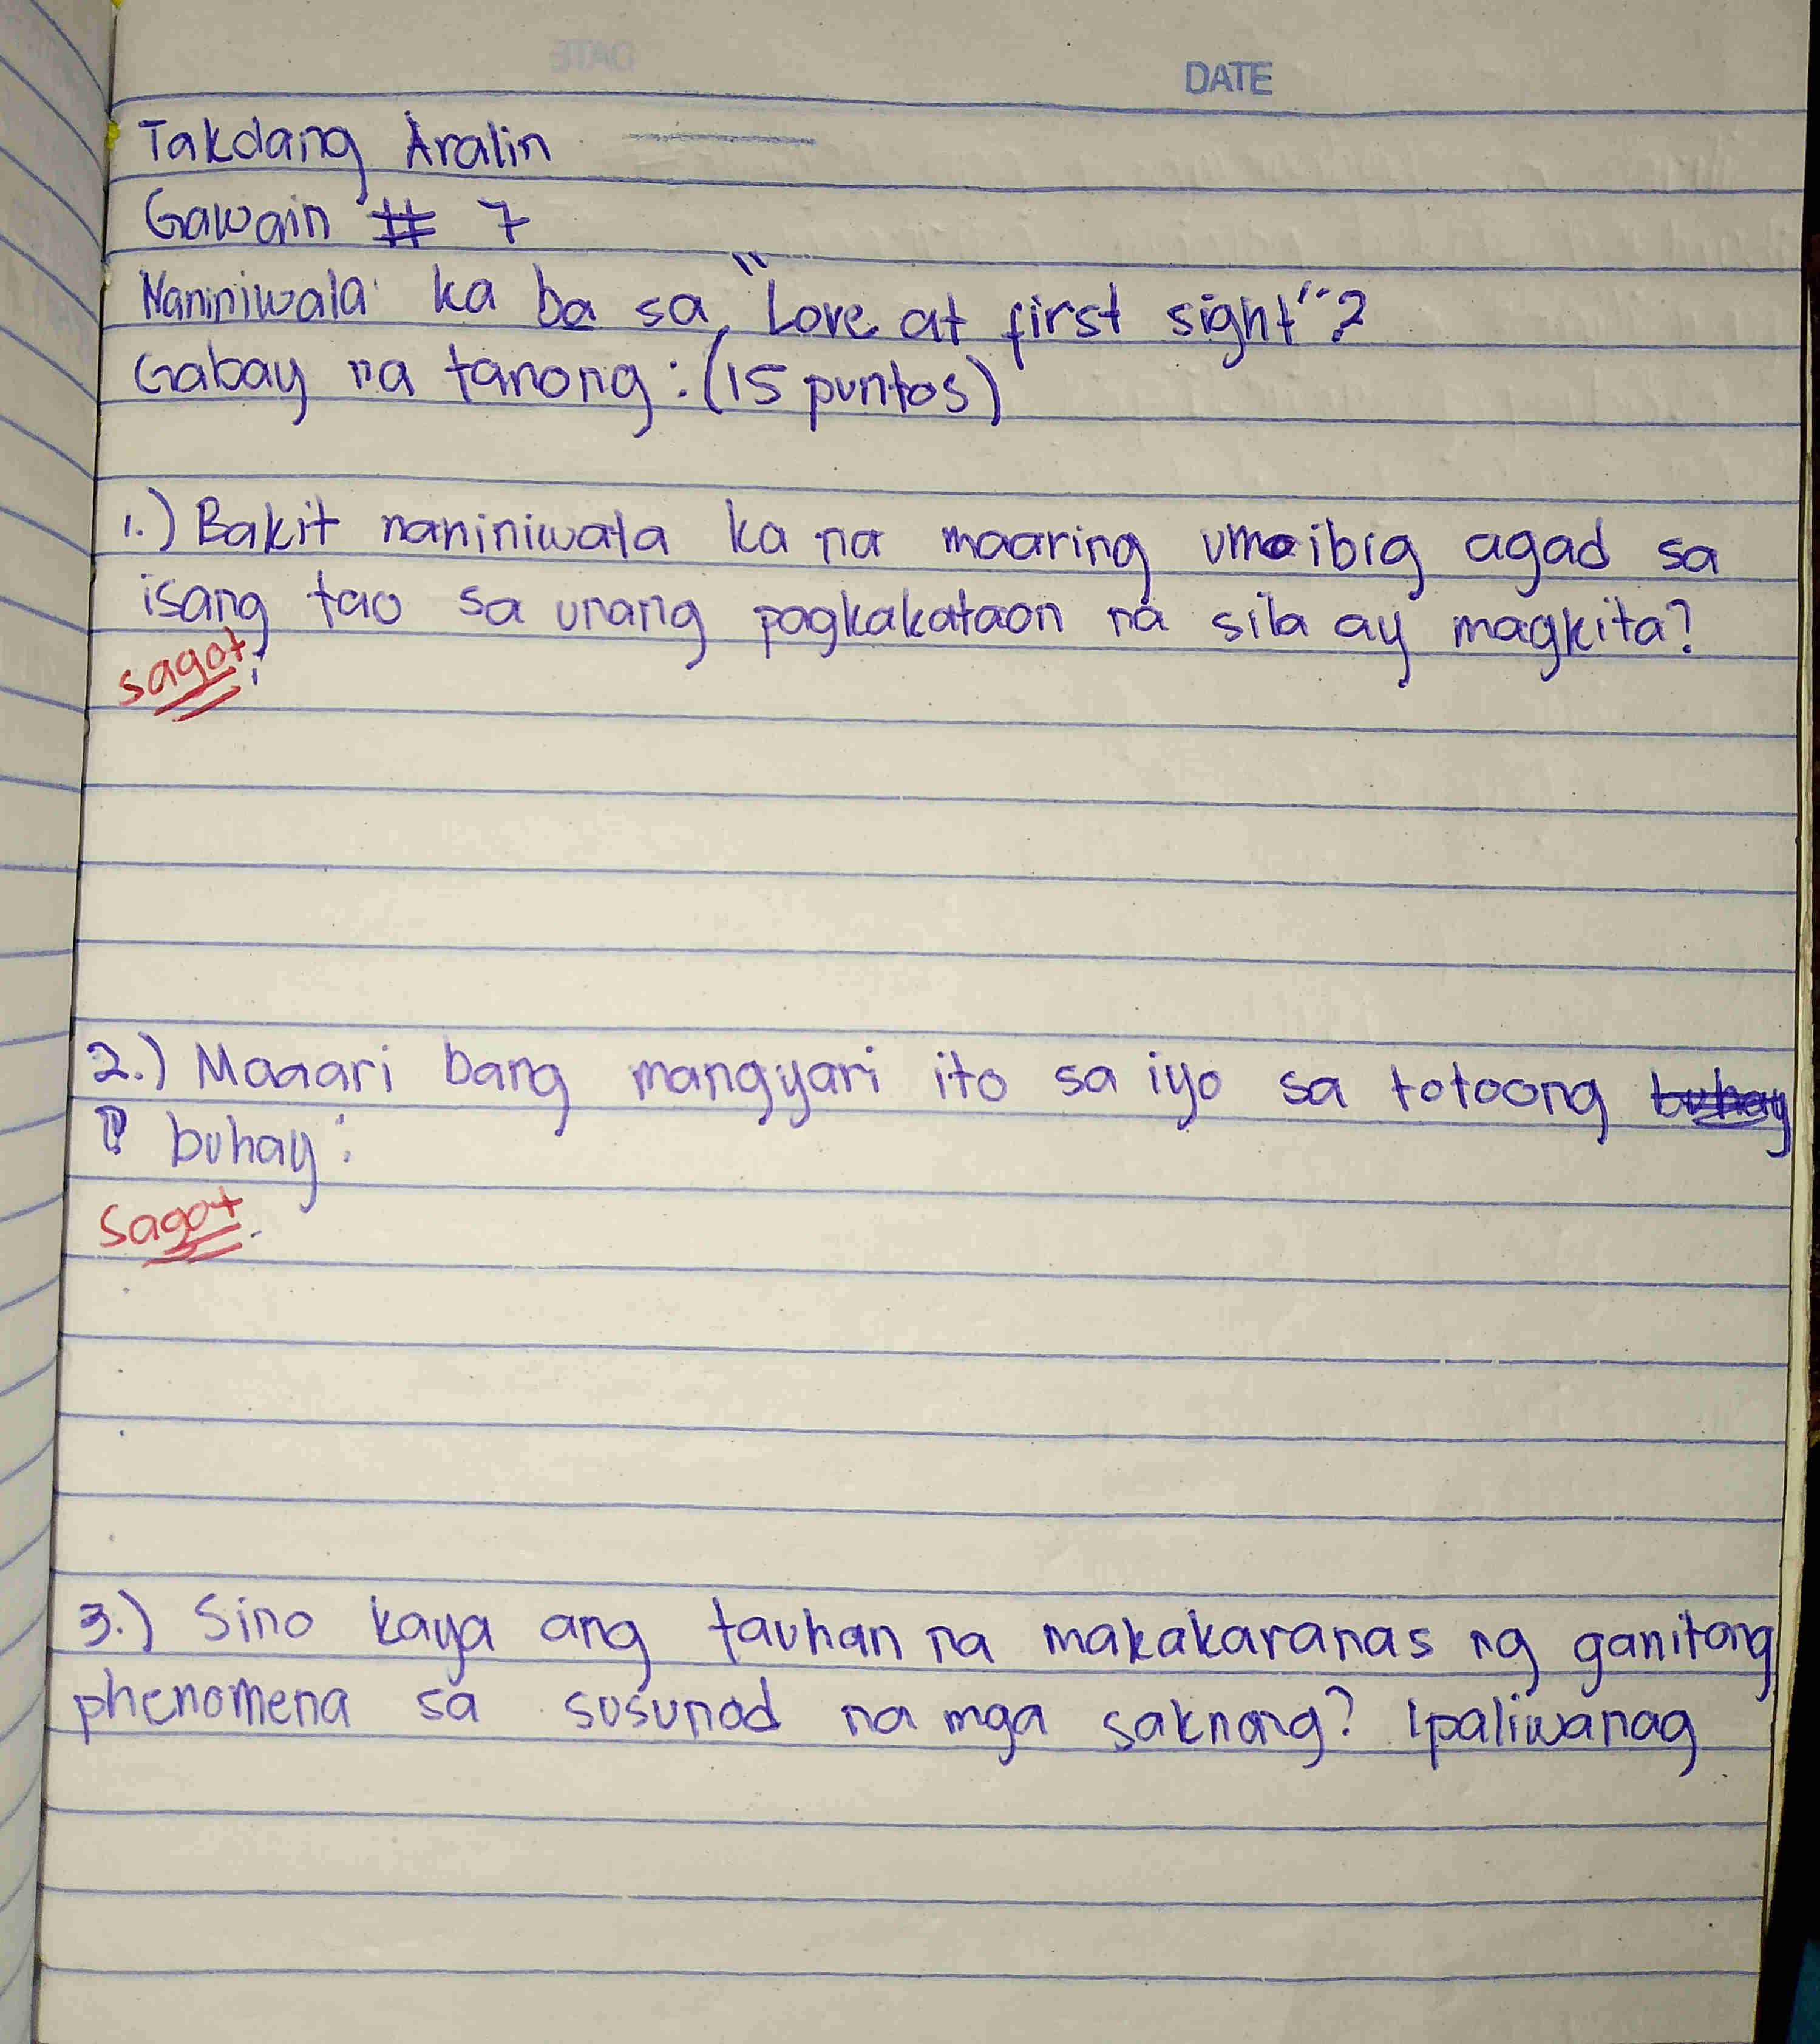 DATE
Takdang Aralin
Gawain # 7
Naniniwala ka ba sa "Love at first sight"?
Gabay na tanong: (15 puntos)
1.) Bakit naniniwala ka na maaring umibig agad sa
isang tao sa unang pagkakataon na sila ay magkita?
sagot:
2.) Maaari bang mangyari ito sa iyo sa totoong
buhay:
Sagot.
3.) Sino kaya ang tauhan na makakaranas ng ganitong
phenomena sa susunod na mga saknong? Ipaliwanag